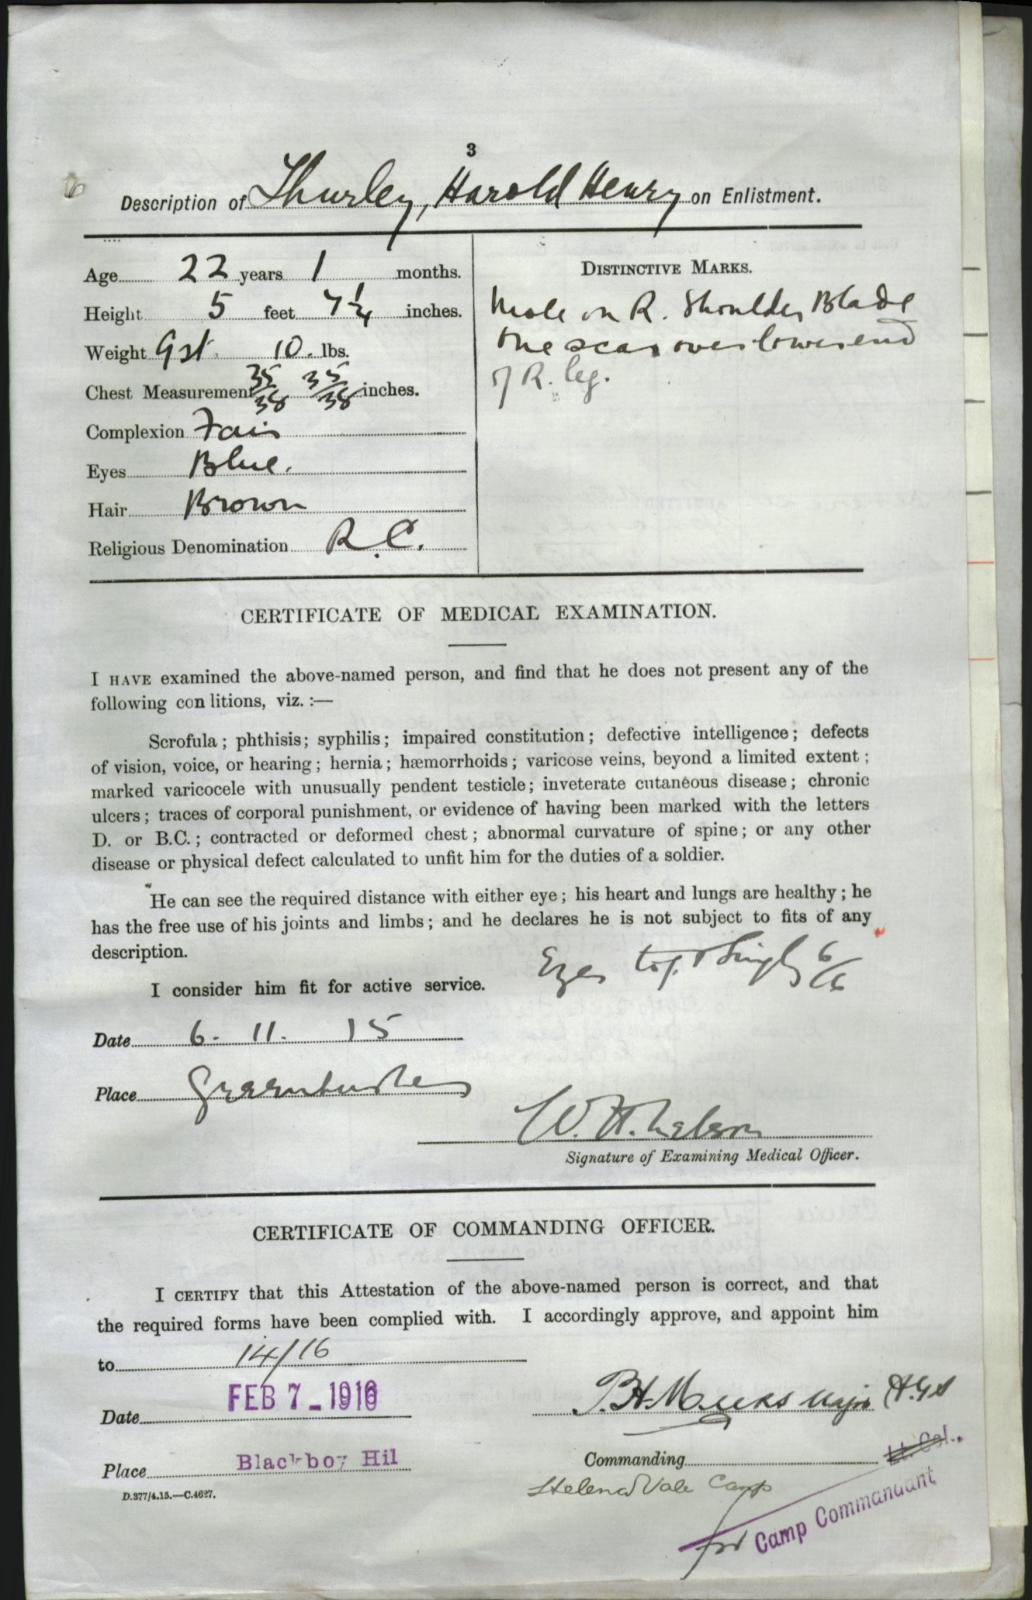 3
Description of Thurley, Harold Henry on Enlistment.
Age 22 years 1 months.
Height 5 feet 7 1/4 inches.
Weight 9 st. 10. lbs.
Chest Measurement 35/38 35/38 inches.
Complexion Fair
Eyes Blue.
Hair Brown
Religious Denomination R.C.
DISTINCTIVE MARKS.
Mole on R. Shoulder Blade
One scar over lower end
of R. leg.
CERTIFICATE OF MEDICAL EXAMINATION.
I HAVE examined the above-named person, and find that he does not present any of the
following con litions, viz. :—
Scrofula ; phthisis ; syphilis ; impaired constitution ; defective intelligence ; defects
of vision, voice, or hearing ; hernia ; hæmorrhoids ; varicose veins, beyond a limited extent ;
marked varicocele with unusually pendent testicle ; inveterate cutaneous disease ; chronic
ulcers ; traces of corporal punishment, or evidence of having been marked with the letters
D. or B.C. ; contracted or deformed chest ; abnormal curvature of spine ; or any other
disease or physical defect calculated to unfit him for the duties of a soldier.
He can see the required distance with either eye ; his heart and lungs are healthy ; he
has the free use of his joints and limbs ; and he declares he is not subject to fits of any
description.
Eyes tog. & Singly 6/6
I consider him fit for active service.
Date 6. 11. 15
Place Greenbushes
W. H. Nelson
Signature of Examining Medical Officer.
CERTIFICATE OF COMMANDING OFFICER.
I CERTIFY that this Attestation of the above-named person is correct, and that
the required forms have been complied with. I accordingly approve, and appoint him
to 14/16
Date FEB 7 - 1916
Major
Place Blackboy Hil
Commanding Lt. Col.
D.377/4.15.—C.4627.
Helena Vale Camp
for Camp Commandant